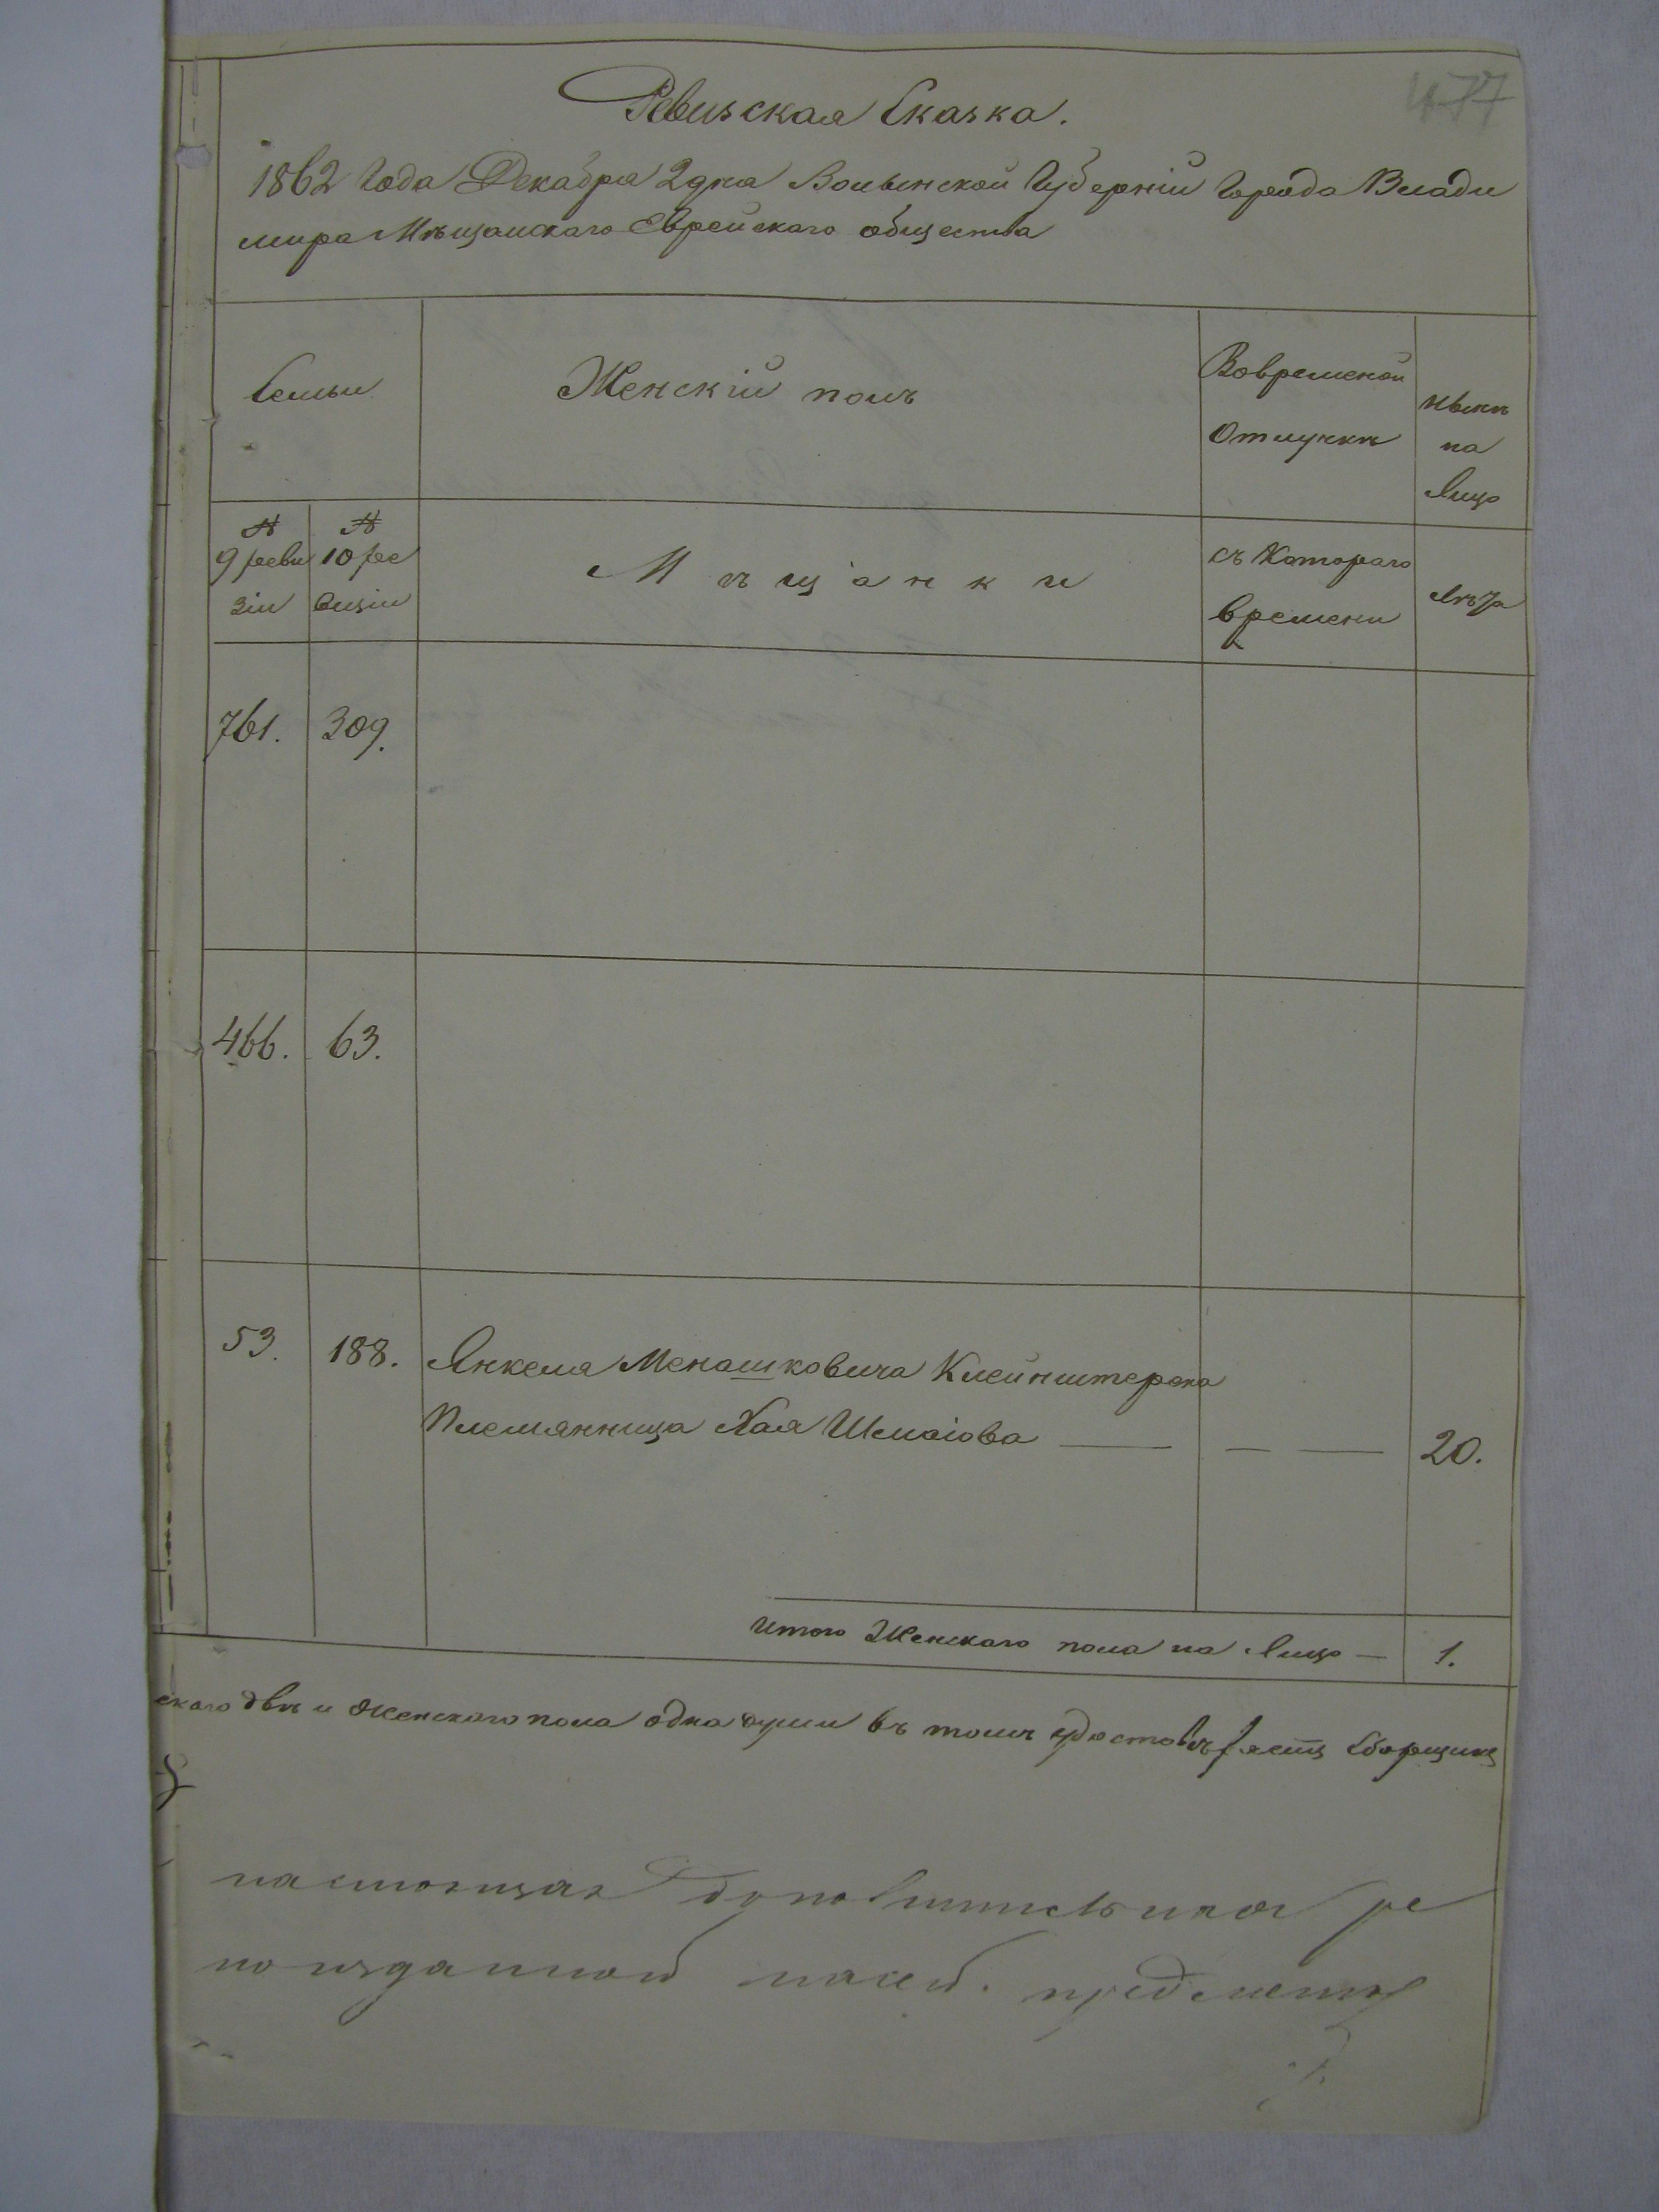 477
Ревизская Сказка.
1862 Года Декабря 2 дня Волынской Губерніи Города Влади
мира Мѣщанскаго Еврейскаго общества
Семьи
Женскій полъ
Вовременой
Отлучкѣ
Нынѣ
на
Лицо
№
9 реви
зіи
№
10 ре
визіи
Мѣщанки
съ Котораго
времени
Лѣта
761. 309.
466. 63.
53. 188. Янкеля Менашковича Клейнштерна
Племянница Хая Шмаіова — — — 20.
Итого Женскаго пола на Лицо — 1.
скаго двѣ и Женскаго пола одна души въ томъ удостовѣряетъ Сборщикъ
настоящая дополнительная ре
по изданной